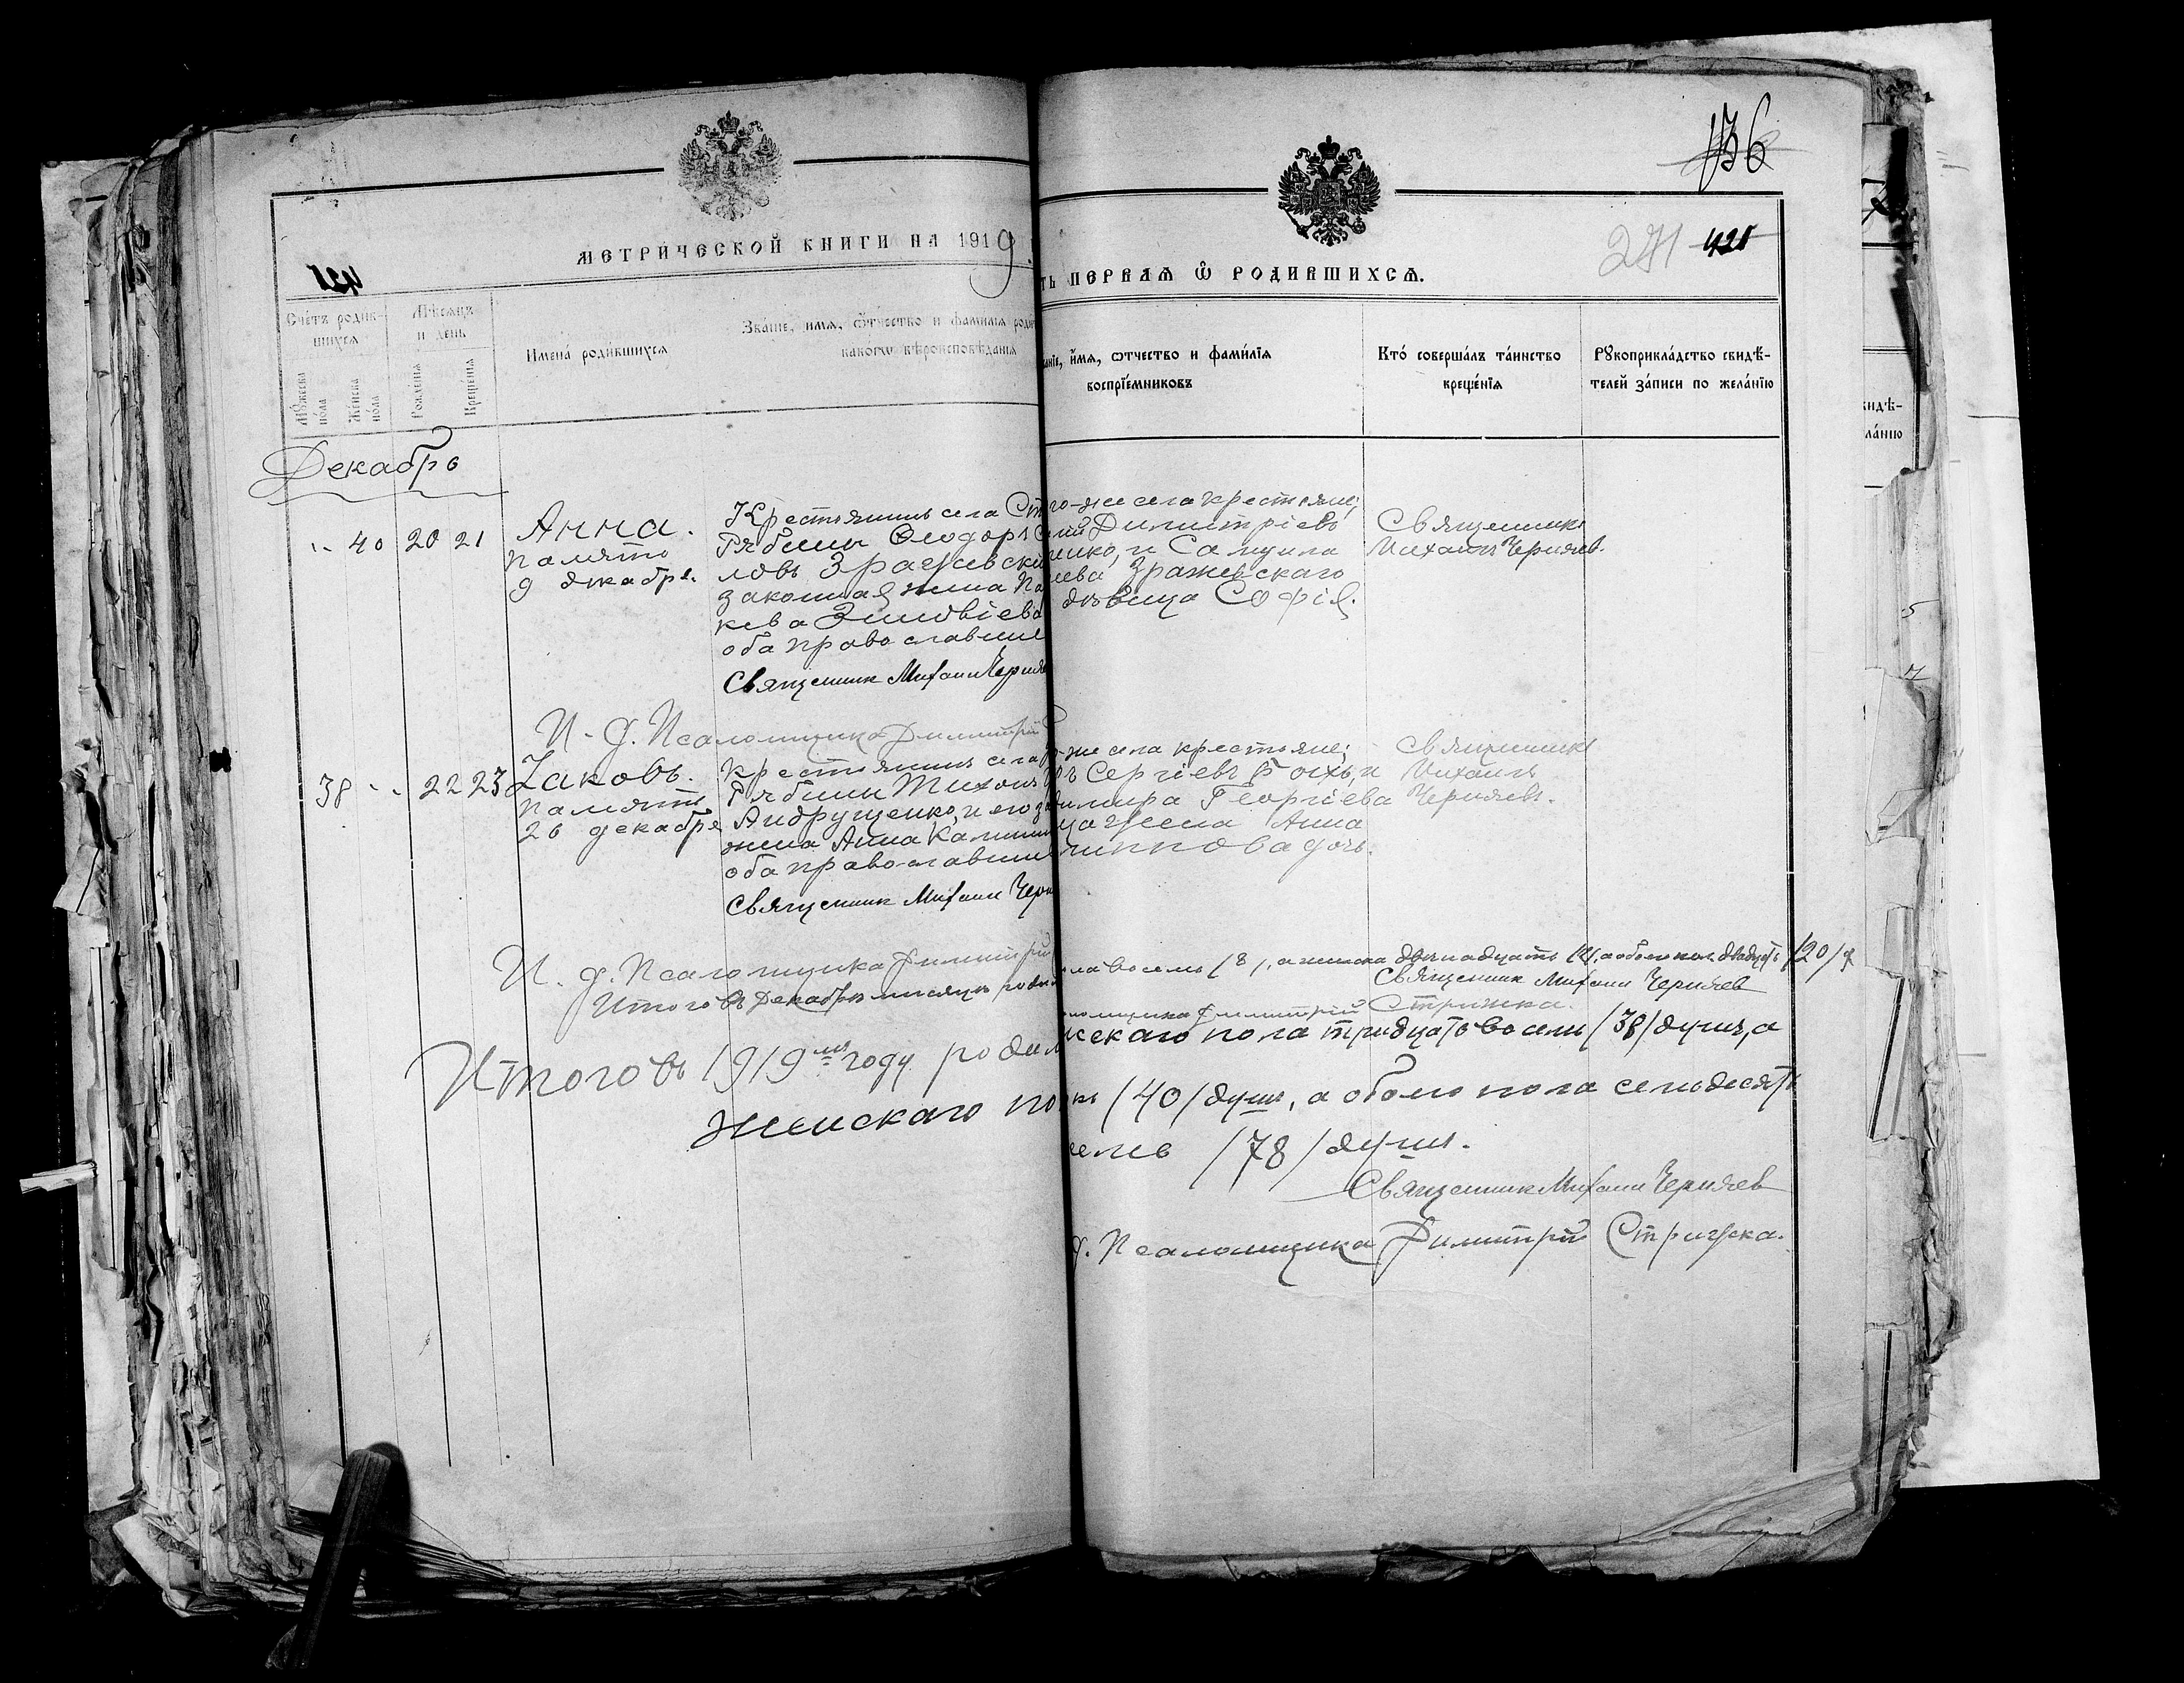 136
МЕТРИЧЕСКОЙ КНИГИ НА 1919
ТЬ ПЕРВАЯ Ѿ РОДИВШИХСЯ.
271 421
421
Счетъ родив-
шихся
Мѣсяцъ
и день
Мужеска
пола
Женска
пола
Рожденія
Крещенія
Имена родившихся
Званіе, имя, ѿтчество и фамилія роди
какогω вѣроисповѣданія
аніе, имя, ѿтчество и фамилія
воспріемниковъ
Кто совершалъ таинство
крещенія
Рукоприкладство свидѣ-
телей записи по желанію
Декабрь
" 40 20 21
Анна.
Память
9 декабря.
Крестьянинъ села Ст
Рябины Ѳеодоръ С
ловъ Зражевски
законная жена Па
кева Зиновіева
оба православные
Священник Михаил Черняв
го-же села крестьяне;
Димитріевъ
енко, и Самуила
иева Зражевскаго
дѣвица Софія.
Священникъ
Михаилъ Чернявъ.
И. д. Псаломщика Димитрій
38 " 22 23
Іаковъ.
Память
26 декабря
Крестьянинъ села
Рябины Тихонъ
Андрущенко, и его з
жена Анна Калин
оба православные
Священник Михаил Черн
-же села крестьяне;
ъ Сергіевъ и
димира Георгіева
жена Анна
липпова дочь.
Священникъ
Михаилъ
Чернявъ.
И. д. Псаломщика Димитрій
Итого въ Декабрѣ мѣсяцѣ роди
ола восемь /8/, а женска двѣнадцать /12/, а обоего пола двадцать /20/ д
Священник Михаил Чернявъ
ломщика Димитрій Стрижка.
Итого въ 1919мъ году роди
жскаго пола тридцать восемь /38/ душъ, а
женскаго по
къ /40/ душъ, а обоего пола семьдесятъ
семь /78/ душъ.
Священник Михаил Чернявъ
д. Псаломщика Димитрій Стрижка.